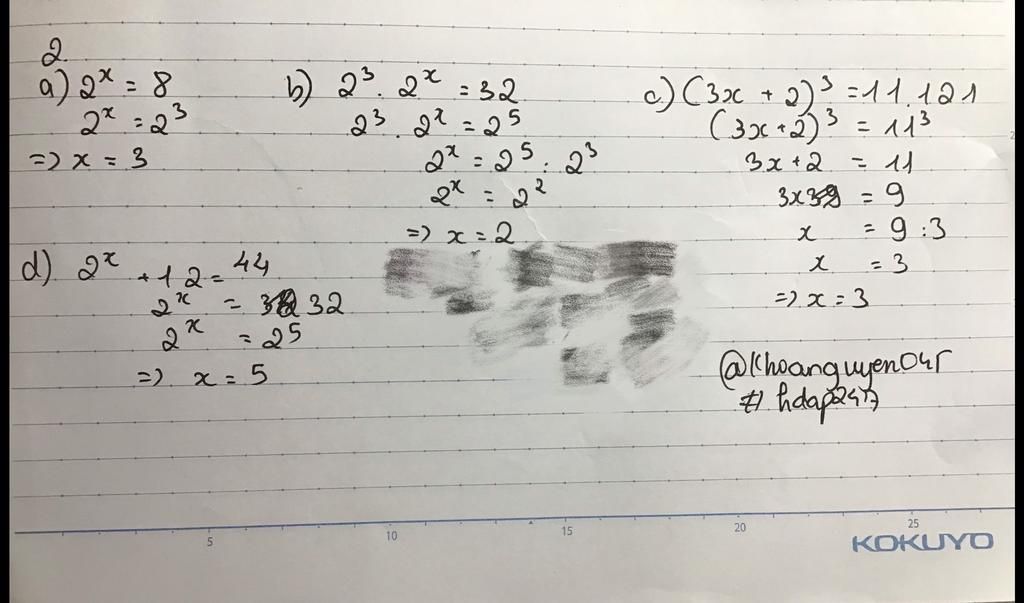 2
a) 2ˣ = 8
2ˣ = 2³
=> x = 3
b) 2³ . 2ˣ = 32
2³ . 2ˣ = 2⁵
2ˣ = 2⁵ : 2³
2ˣ = 2²
=> x = 2
c) (3x + 2)³ = 11.121
(3x+2)³ = 11³
3x+2 = 11
3x = 9
x = 9 :3
x = 3
=> x = 3
d) 2ˣ + 12 = 44
2ˣ = 32
2ˣ = 2⁵
=> x = 5
@Khoanguyen045
# hdap247
5 10 15 20 25
KOKUYO